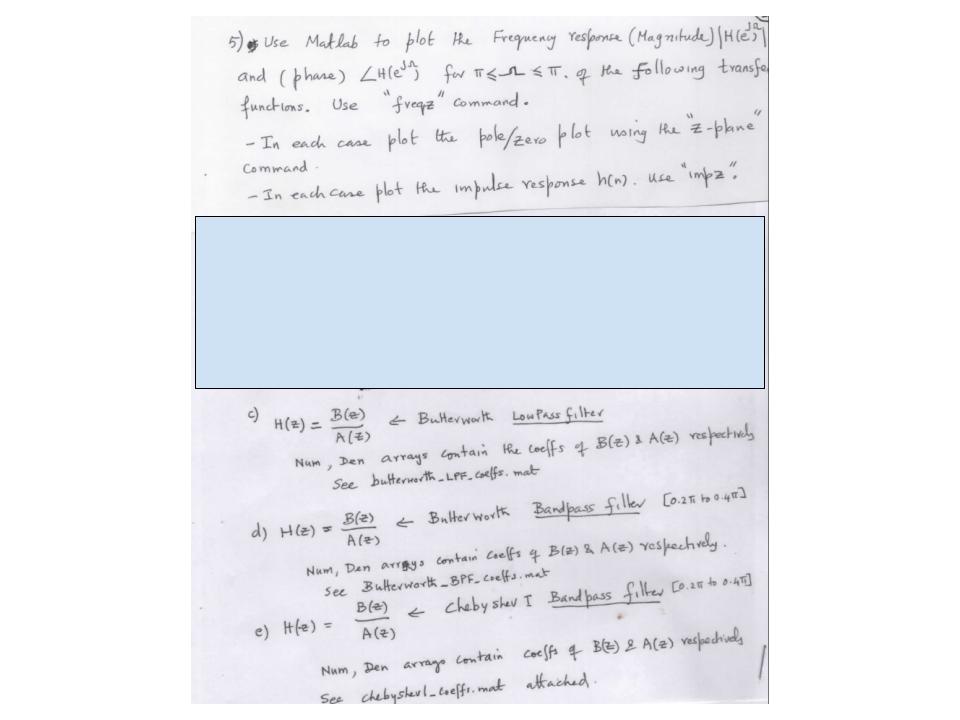 5) Use Matlab to plot the Frequency response (Magnitude) |H(e^jΩ)|
and (phase) ∠H(e^jΩ) for π ≤ Ω ≤ π. of the following transfe
functions. Use "freqz" command.
- In each case plot the pole/zero plot using the "z-plane"
command.
- In each case plot the impulse response h(n). use "impz".
c) H(z) = B(z)/A(z) ← Butterworth LowPass filter
Num, Den arrays contain the coeffs of B(z) & A(z) respectively
See butterworth_LPF_coeffs.mat
d) H(z) = B(z)/A(z) ← Butterworth Bandpass filter [0.2π to 0.4π]
Num, Den arrays contain coeffs of B(z) & A(z) respectively.
See Butterworth_BPF_coeffs.mat
e) H(z) = B(z)/A(z) ← Chebyshev I Bandpass filter [0.2π to 0.4π]
Num, Den arrays contain coeffs of B(z) & A(z) respectively
See chebyshev1_coeffs.mat attached.